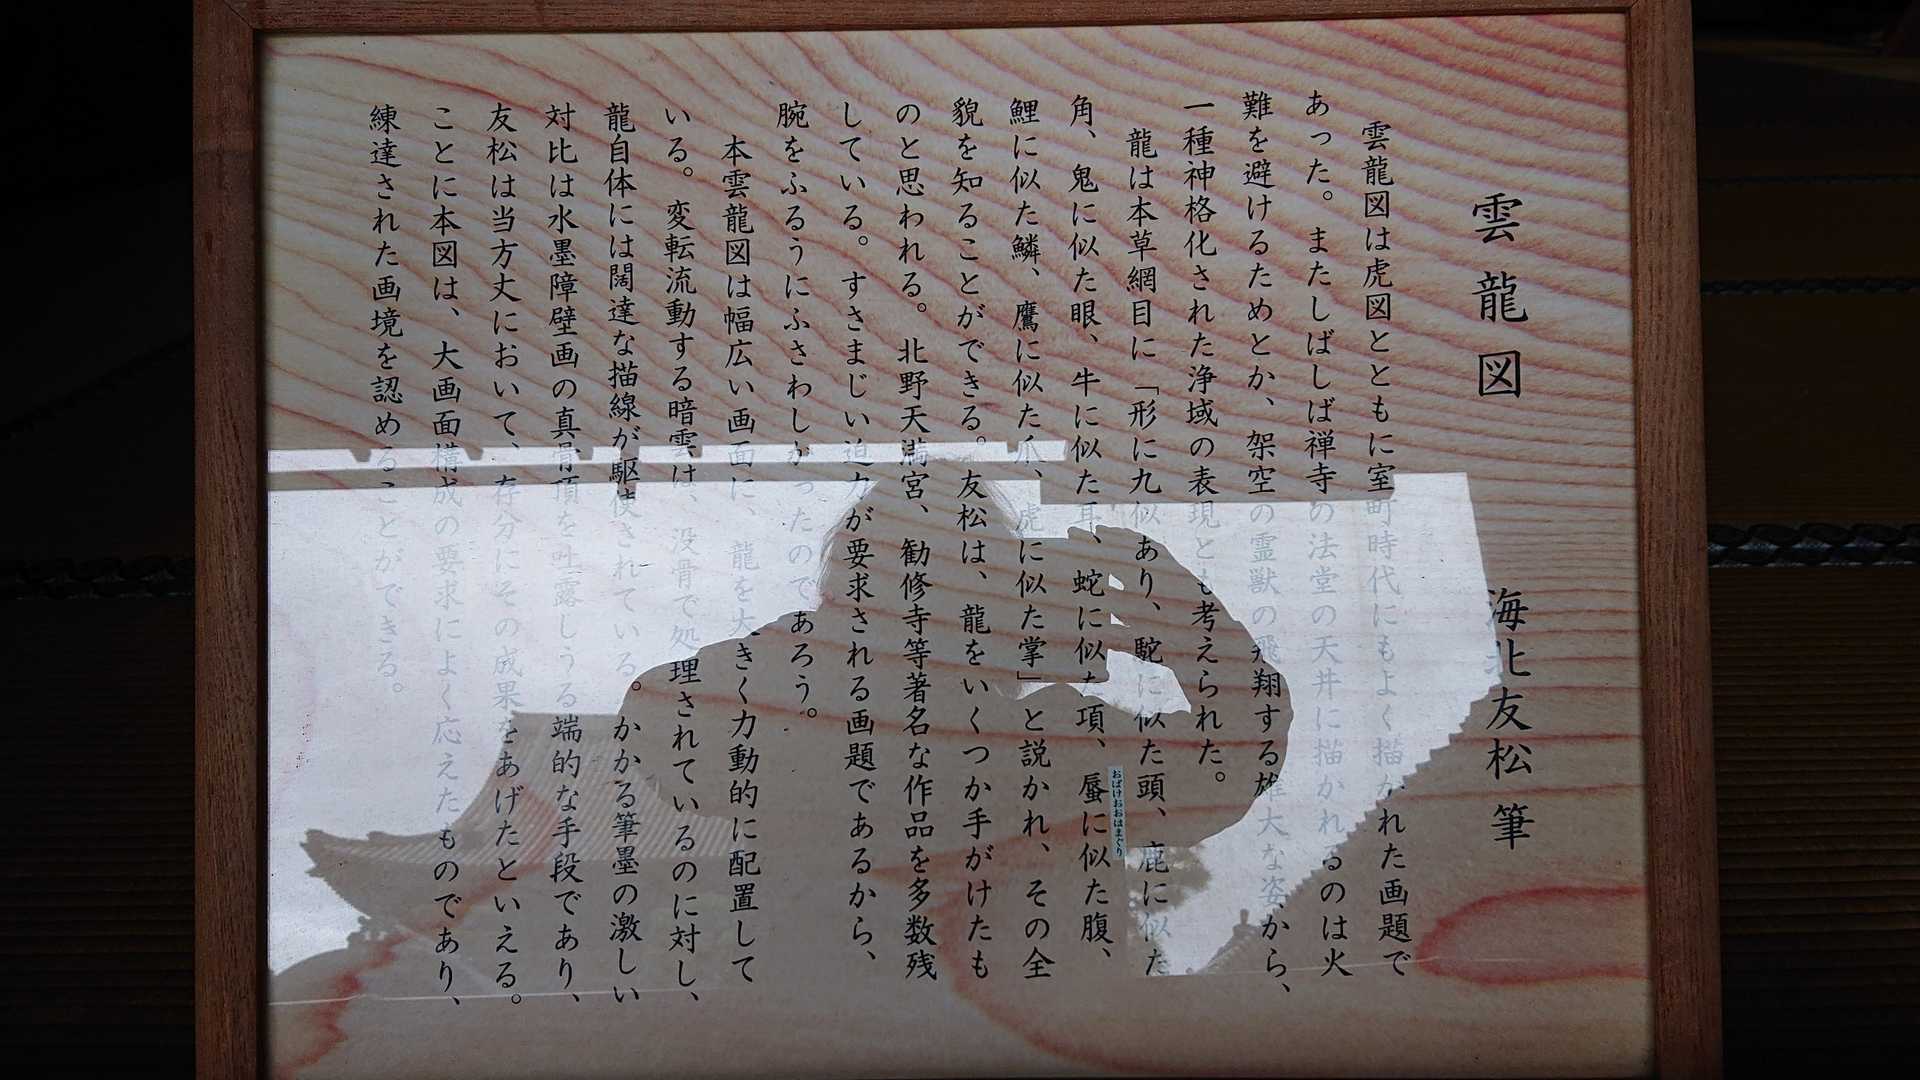 雲龍図　海北友松筆
雲龍図は虎図とともに室町時代にもよく描かれた画題で
あった。またしばしば禅寺の法堂の天井に描かれるのは火
難を避けるためとか、架空の霊獣の飛翔する雄大な姿から、
一種神格化された浄域の表現とも考えられた。
龍は本草網目に「形に九似あり、駝に似た頭、鹿に似た
角、鬼に似た眼、牛に似た耳、蛇に似た項、蜃に似た腹、
おばけおおはまぐり
鯉に似た鱗、鷹に似た爪、虎に似た掌」と説かれ、その全
貌を知ることができる。友松は、龍をいくつか手がけたも
のと思われる。北野天満宮、勧修寺等著名な作品を多数残
している。すさまじい迫力が要求される画題であるから、
腕をふるうにふさわしかったのであろう。
本雲龍図は幅広い画面に、龍を大きく力動的に配置して
いる。変転流動する暗雲は、没骨で処理されているのに対し、
龍自体には闊達な描線が駆使されている。かかる筆墨の激しい
対比は水墨障壁画の真骨頂を吐露しうる端的な手段であり、
友松は当方丈において、存分にその成果をあげたといえる。
ことに本図は、大画面構成の要求によく応えたものであり、
練達された画境を認めることができる。